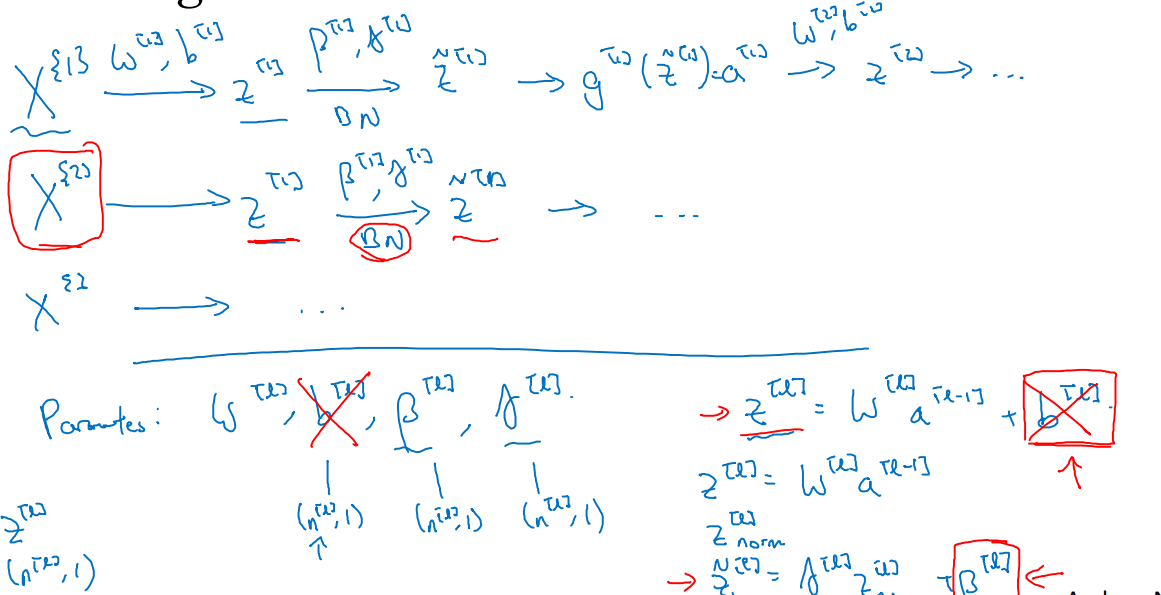 X^{1} W^[1], b^[1] → z^[1] β^[1], γ^[1] → BN z̃^[1] → g^[1](z̃^[1]) = a^[1] W^[2], b^[2] → z^[2] → ...
X^{2} → z^[1] β^[1], γ^[1] → BN z̃^[1] → ...
X^{} → ...
Paramters: W^[l], b^[l], β^[l], γ^[l].
(n^[l], 1) (n^[l], 1) (n^[l], 1)
↑
z^[l]
(n^[l], 1)
→ z^[l] = W^[l] a^[l-1] + b^[l].
↑
z^[l] = W^[l] a^[l-1]
z^[l]_norm
→ z̃^[l] = γ^[l] z^[l] + β^[l] ←